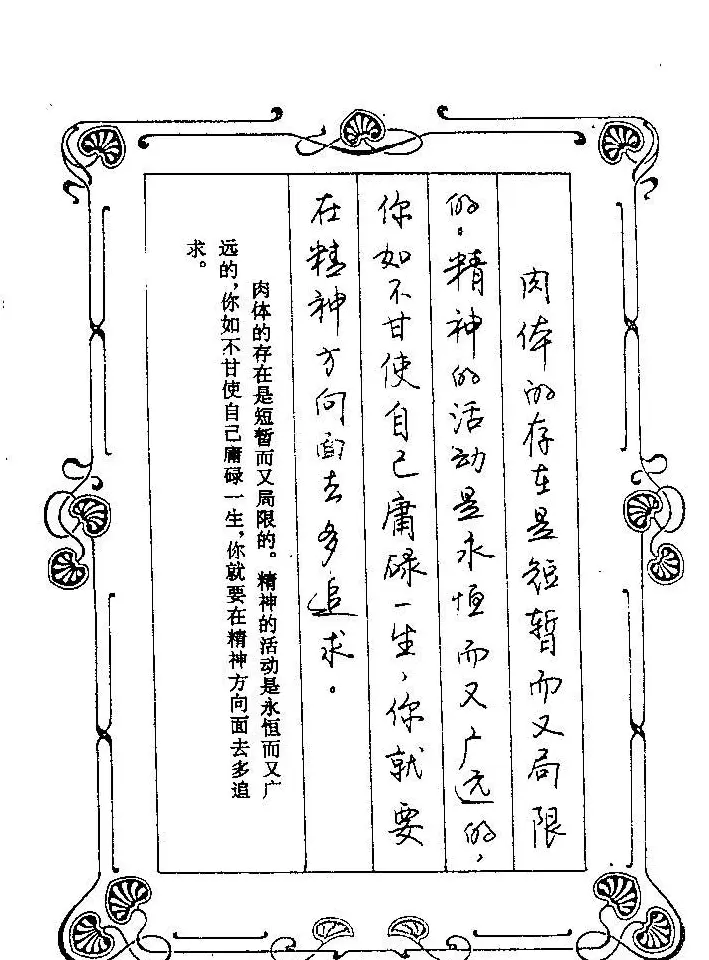 肉体的存在是短暂而又局限
的。精神的活动是永恒而又广远的，
你如不甘使自己庸碌一生，你就要
在精神方向面去多追求。
肉体的存在是短暂而又局限的。精神的活动是永恒而又广
远的，你如不甘使自己庸碌一生，你就要在精神方向面去多追
求。